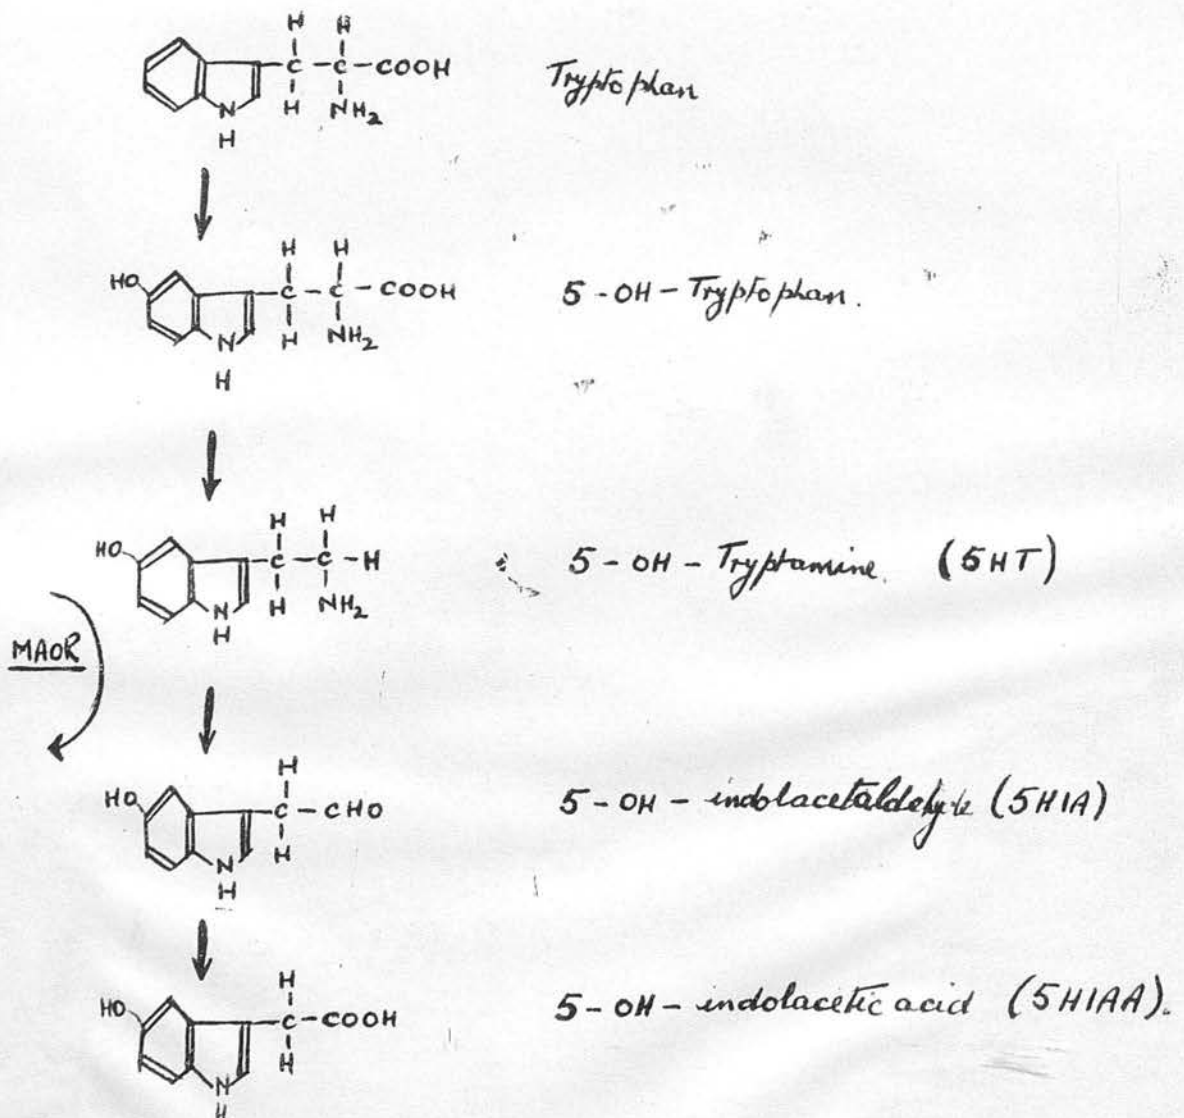 H H
C C COOH
N H NH2
H
Tryptophan
H H
HO C C COOH
N H NH2
H
5 - OH - Tryptophan.
H H
HO C C - H
N H NH2
H
5 - OH - Tryptamine. (5HT)
MAOR
H
HO C - CHO
N H
H
5 - OH - indolacetaldehyde (5HIA)
H
HO C - COOH
N H
H
5 - OH - indolacetic acid (5HIAA).